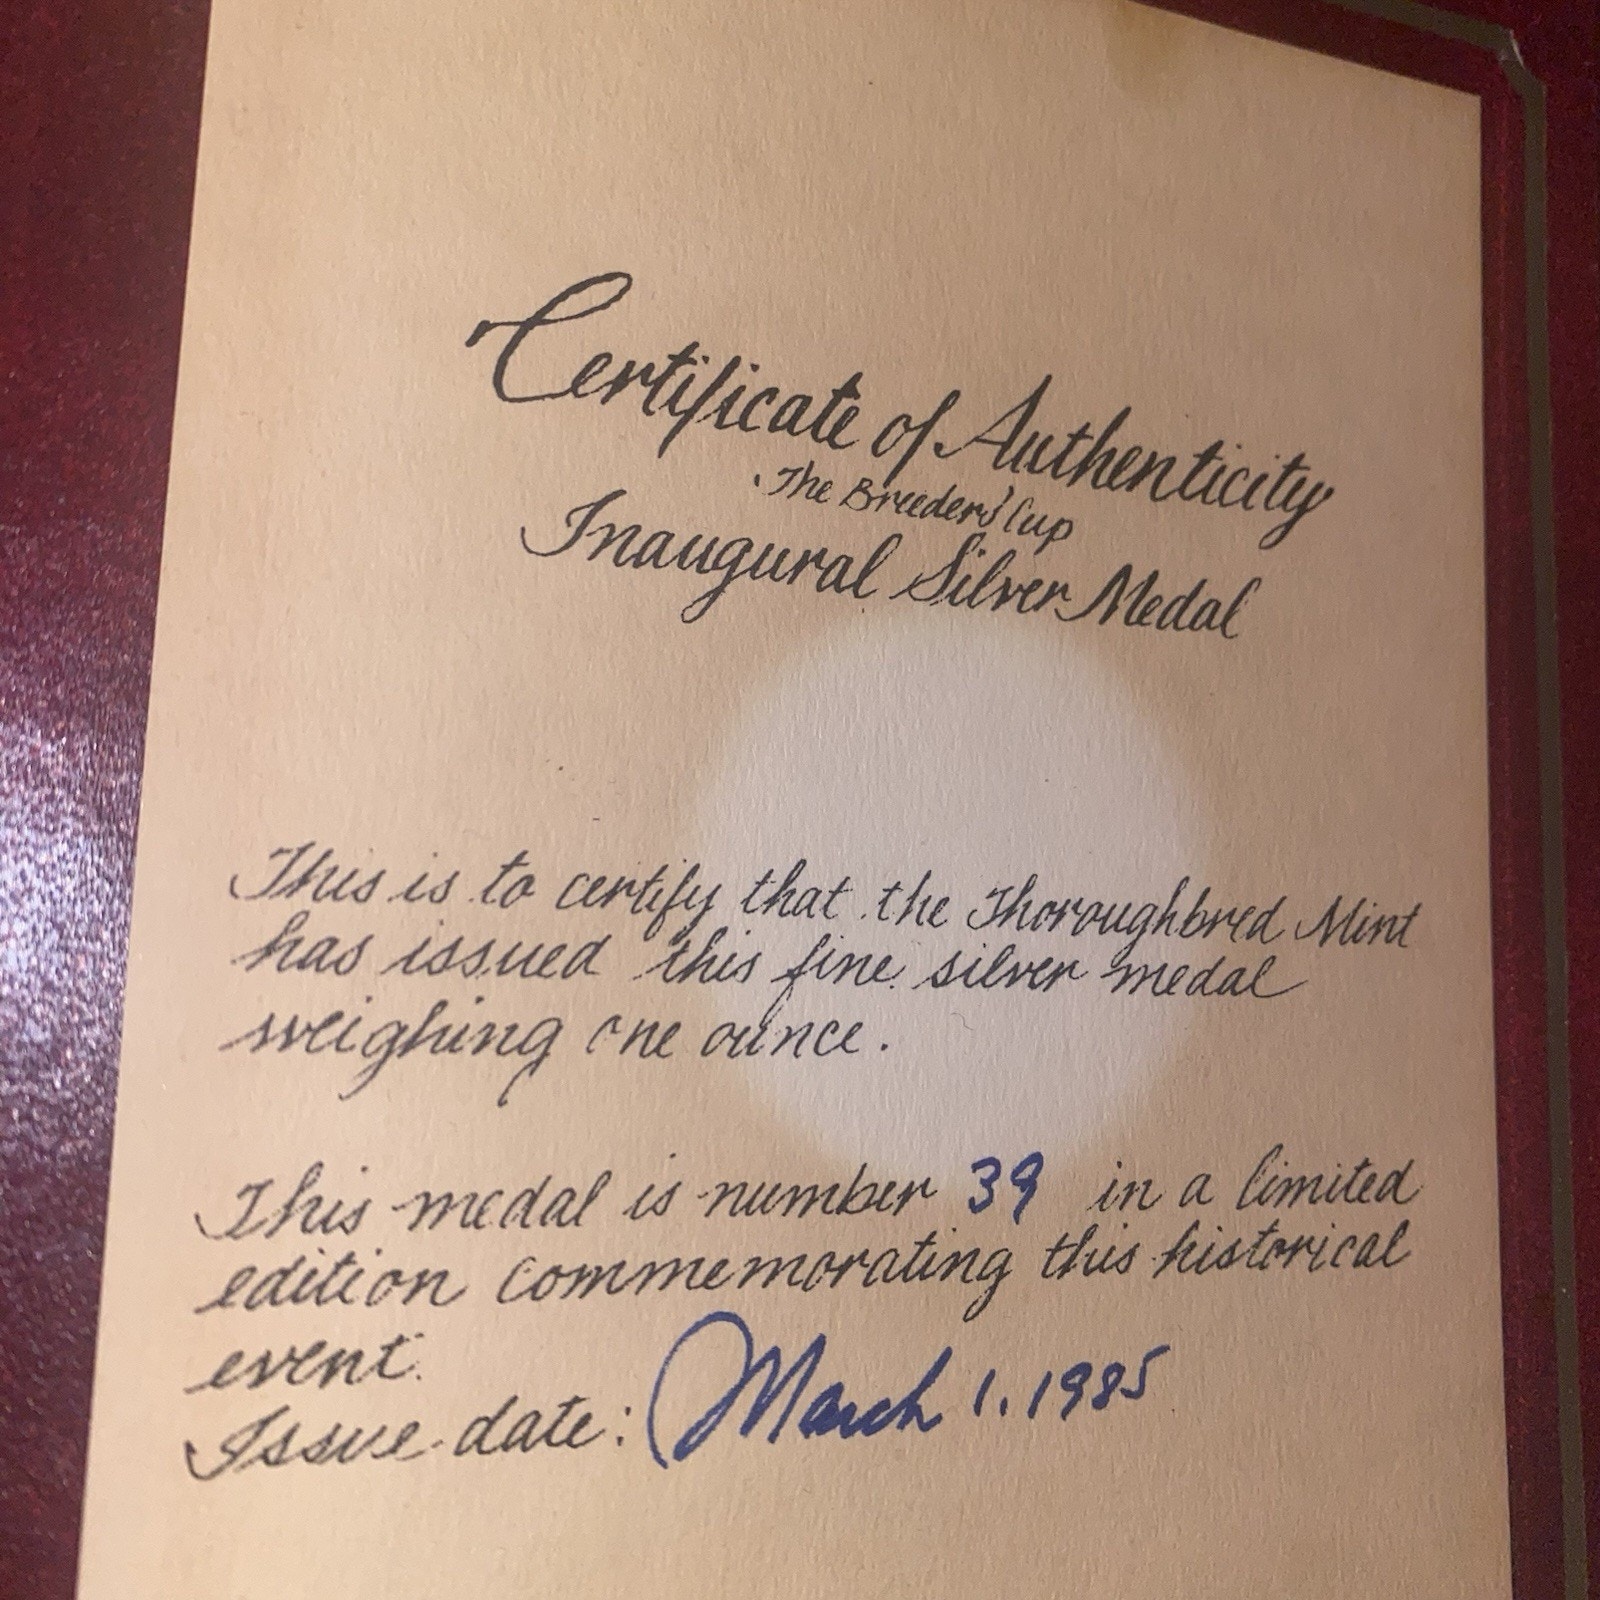 Certificate of Authenticity
The Breeders' Cup
Inaugural Silver Medal
This is to certify that the Thoroughbred Mint
has issued this fine silver medal
weighing one ounce.
This medal is number 39 in a limited
edition commemorating this historical
event.
Issue date: March 1, 1985